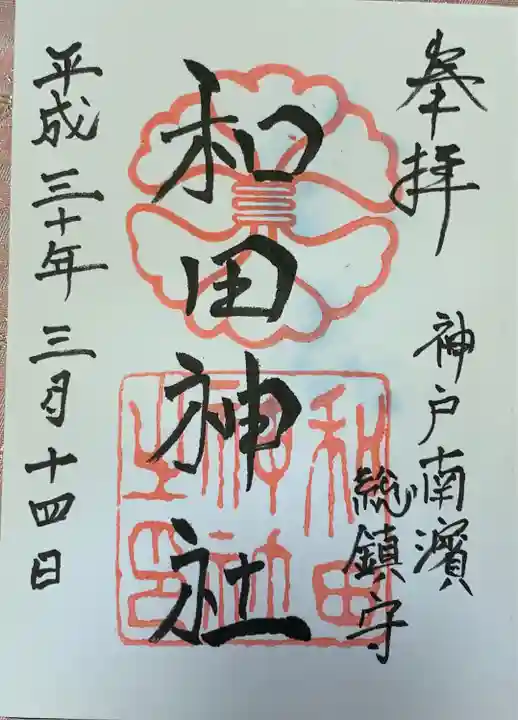 奉拝
神戸南濱
総鎮守
和田神社
和田
神社
之印
平成三十年三月十四日